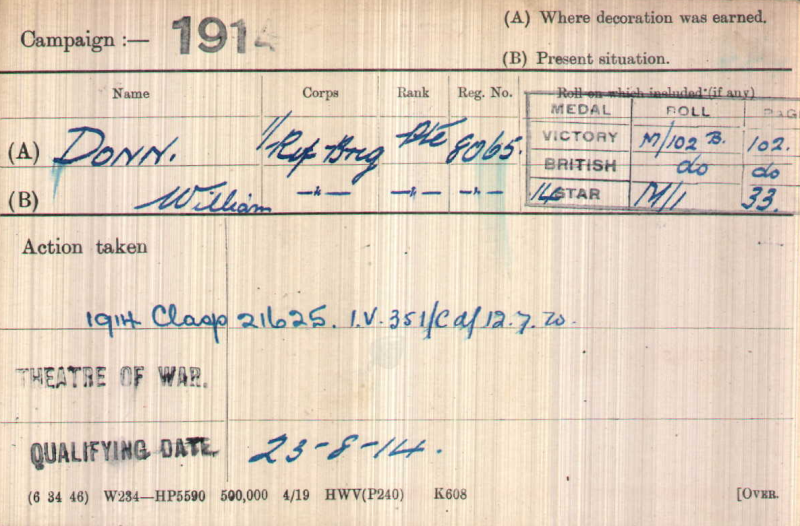 Campaign :— 1914
(A) Where decoration was earned.
(B) Present situation.
Name Corps Rank Reg. No. Roll on which included (if any)
MEDAL ROLL PAGE
(A) DONN. 1/Rif Brig Pte 8065. VICTORY M/102 B. 102.
BRITISH do do
(B) William —"— —"— —"— 14 STAR M/1 33.
Action taken
1914 Clasp 21625. I.V. 351/C d/ 12.7.20.
THEATRE OF WAR.
QUALIFYING DATE. 23-8-14.
(6 34 46) W234—HP5590 500,000 4/19 HWV(P240) K608 [OVER.